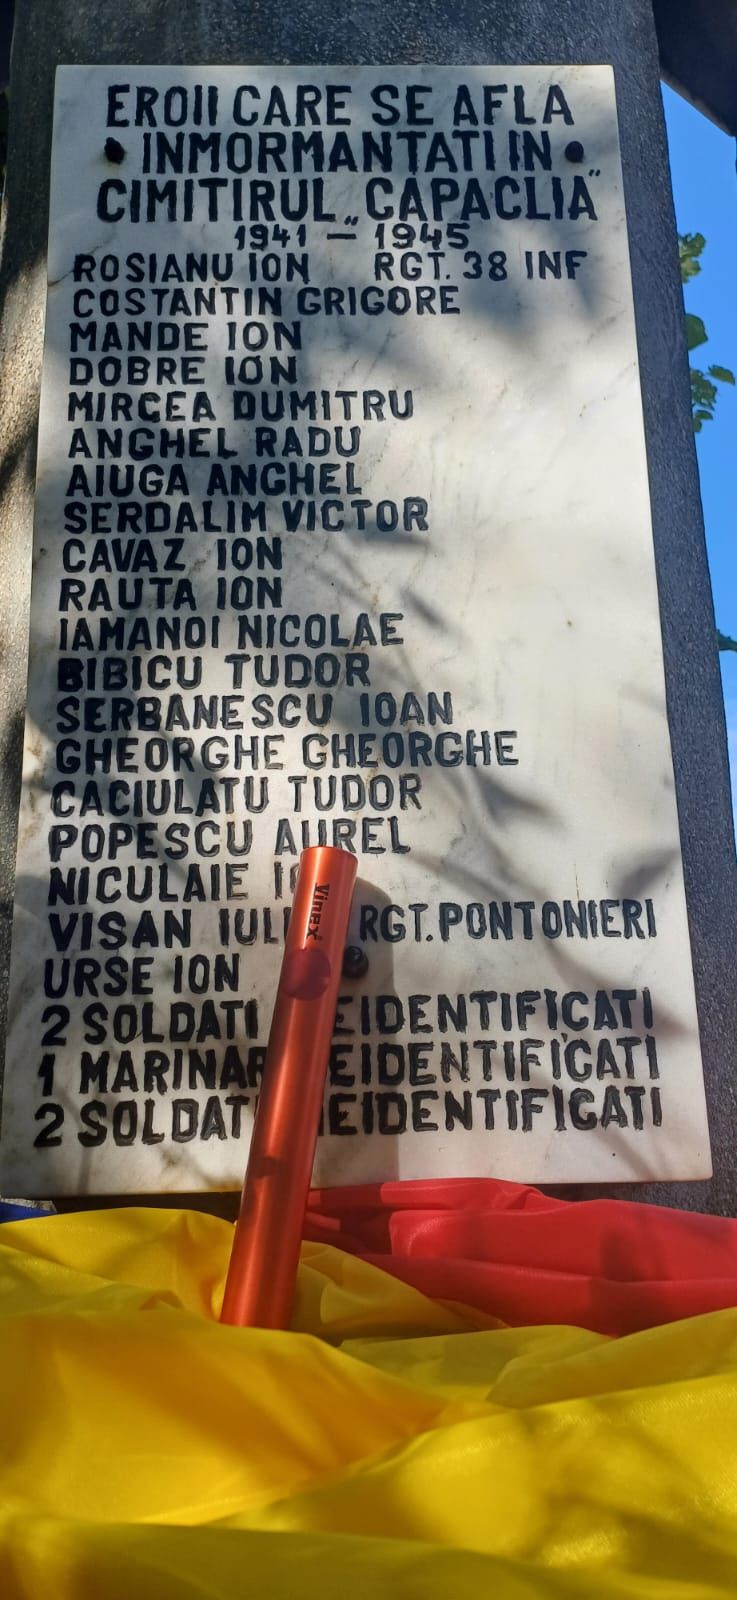 EROII CARE SE AFLA
• INMORMANTATI IN •
CIMITIRUL „CAPACLIA"
1941 — 1945
ROSIANU ION RGT. 38 INF
COSTANTIN GRIGORE
MANDE ION
DOBRE ION
MIRCEA DUMITRU
ANGHEL RADU
AIUGA ANGHEL
SERDALIM VICTOR
CAVAZ ION
RAUTA ION
IAMANOI NICOLAE
BIBICU TUDOR
SERBANESCU IOAN
GHEORGHE GHEORGHE
CACIULATU TUDOR
POPESCU AUREL
NICULAIE
VISAN RGT. PONTONIERI
Vinex
URSE ION
2 SOLDATI
1
2